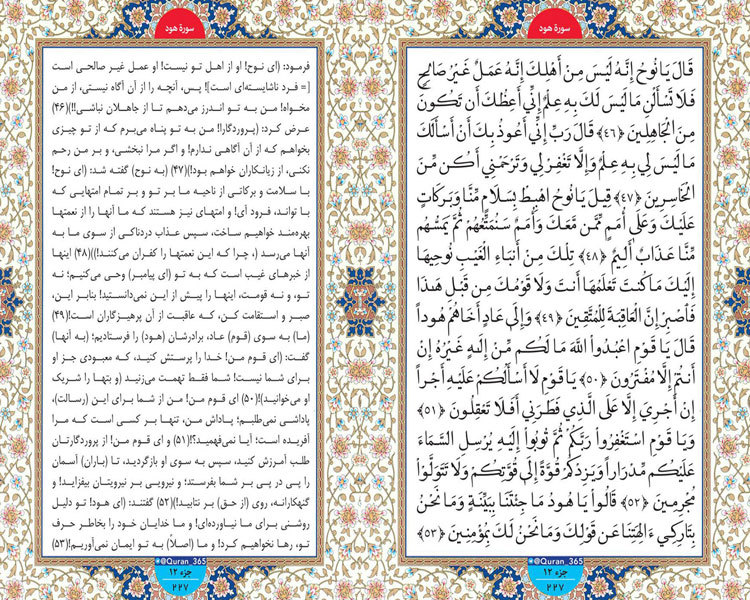 سورهٔ هود
قَالَ يَا نُوحُ إِنَّهُ لَيْسَ مِنْ أَهْلِكَ إِنَّهُ عَمَلٌ غَيْرُ صَالِحٍ
فَلَا تَسْأَلْنِ مَا لَيْسَ لَكَ بِهِ عِلْمٌ إِنِّي أَعِظُكَ أَنْ تَكُونَ
مِنَ الْجَاهِلِينَ ﴿٤٦﴾ قَالَ رَبِّ إِنِّي أَعُوذُ بِكَ أَنْ أَسْأَلَكَ
مَا لَيْسَ لِي بِهِ عِلْمٌ وَإِلَّا تَغْفِرْ لِي وَتَرْحَمْنِي أَكُنْ مِنَ
الْخَاسِرِينَ ﴿٤٧﴾ قِيلَ يَا نُوحُ اهْبِطْ بِسَلَامٍ مِنَّا وَبَرَكَاتٍ
عَلَيْكَ وَعَلَى أُمَمٍ مِمَّنْ مَعَكَ وَأُمَمٌ سَنُمَتِّعُهُمْ ثُمَّ يَمَسُّهُمْ
مِنَّا عَذَابٌ أَلِيمٌ ﴿٤٨﴾ تِلْكَ مِنْ أَنْبَاءِ الْغَيْبِ نُوحِيهَا
إِلَيْكَ مَا كُنْتَ تَعْلَمُهَا أَنْتَ وَلَا قَوْمُكَ مِنْ قَبْلِ هَذَا
فَاصْبِرْ إِنَّ الْعَاقِبَةَ لِلْمُتَّقِينَ ﴿٤٩﴾ وَإِلَى عَادٍ أَخَاهُمْ هُودًا
قَالَ يَا قَوْمِ اعْبُدُوا اللَّهَ مَا لَكُمْ مِنْ إِلَهٍ غَيْرُهُ إِنْ
أَنْتُمْ إِلَّا مُفْتَرُونَ ﴿٥٠﴾ يَا قَوْمِ لَا أَسْأَلُكُمْ عَلَيْهِ أَجْرًا
إِنْ أَجْرِيَ إِلَّا عَلَى الَّذِي فَطَرَنِي أَفَلَا تَعْقِلُونَ ﴿٥١﴾
وَيَا قَوْمِ اسْتَغْفِرُوا رَبَّكُمْ ثُمَّ تُوبُوا إِلَيْهِ يُرْسِلِ السَّمَاءَ
عَلَيْكُمْ مِدْرَارًا وَيَزِدْكُمْ قُوَّةً إِلَى قُوَّتِكُمْ وَلَا تَتَوَلَّوْا
مُجْرِمِينَ ﴿٥٢﴾ قَالُوا يَا هُودُ مَا جِئْتَنَا بِبَيِّنَةٍ وَمَا نَحْنُ
بِتَارِكِي ءَالِهَتِنَا عَنْ قَوْلِكَ وَمَا نَحْنُ لَكَ بِمُؤْمِنِينَ ﴿٥٣﴾
@Quran_365
جزء ۱۲
۲۲۷
سورهٔ هود
فرمود: (ای نوح! او از اهل تو نیست! او عمل غیر صالحی است
[= فرد ناشایسته‌ای است]! پس، آنچه را از آن آگاه نیستی، از من
مخواه! من به تو اندرز می‌دهم تا از جاهلان نباشی!!)(۴۶)
عرض کرد: (پروردگارا! من به تو پناه می‌برم که از تو چیزی
بخواهم که از آن آگاهی ندارم! و اگر مرا نبخشی، و بر من رحم
نکنی، از زیانکاران خواهم بود!)(۴۷) (به نوح) گفته شد: (ای نوح!
با سلامت و برکاتی از ناحیه ما بر تو و بر تمام امتهایی که
با تواند، فرود آی! و امتهای نیز هستند که ما آنها را از نعمتها
بهره‌مند خواهیم ساخت، سپس عذاب دردناکی از سوی ما به
آنها می‌رسد (، چرا که این نعمتها را کفران می‌کنند!))(۴۸) اینها
از خبرهای غیب است که به تو (ای پیامبر) وحی می‌کنیم؛ نه
تو، و نه قومت، اینها را پیش از این نمی‌دانستید! بنابر این،
صبر و استقامت کن، که عاقبت از آن پرهیزگاران است!(۴۹)
(ما) به سوی (قوم) عاد، برادرشان (هود) را فرستادیم؛ (به آنها)
گفت: (ای قوم من! خدا را پرستش کنید، که معبودی جز او
برای شما نیست! شما فقط تهمت می‌زنید (و بتها را شریک
او می‌خوانید)!(۵۰) ای قوم من! من از شما برای این (رسالت)،
پاداشی نمی‌طلبم؛ پاداش من، تنها بر کسی است که مرا
آفریده است؛ آیا نمی‌فهمید؟!(۵۱) و ای قوم من! از پروردگارتان
طلب آمرزش کنید، سپس به سوی او بازگردید، تا (باران) آسمان
را پی در پی بر شما بفرستد؛ و نیرویی بر نیرویتان بیفزاید! و
گنهکارانه، روی (از حق) بر نتابید!)(۵۲) گفتند: (ای هود! تو دلیل
روشنی برای ما نیاورده‌ای! و ما خدایان خود را بخاطر حرف
تو، رها نخواهیم کرد! و ما (اصلاً) به تو ایمان نمی‌آوریم!(۵۳)
@Quran_365
جزء ۱۲
۲۲۷